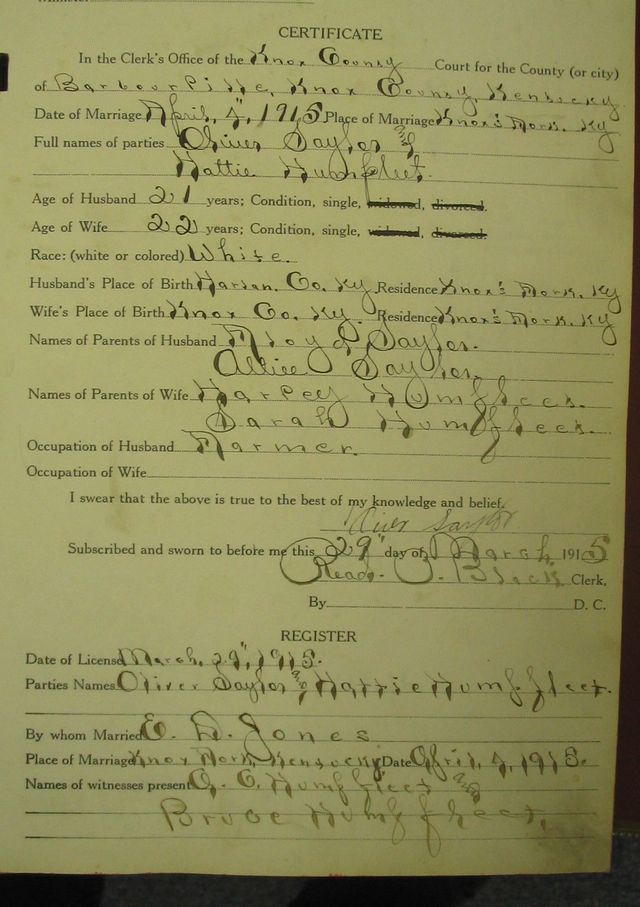 CERTIFICATE
In the Clerk's Office of the Knox County Court for the County (or city)
of Barbourville, Knox County, Kentucky
Date of Marriage April, 4", 1915 Place of Marriage Knox's Fork. Ky
Full names of parties Oliver Saylor and
Hattie Humfleet.
Age of Husband 21 years; Condition, single, widowed, divorced.
Age of Wife 22 years; Condition, single, widowed, divorced.
Race: (white or colored) White.
Husband's Place of Birth Harlan. Co. Ky Residence Knox's Fork. Ky
Wife's Place of Birth Knox Co. Ky. Residence Knox's Fork. Ky
Names of Parents of Husband Floyd Saylor.
Allice Saylor.
Names of Parents of Wife Harley Humfleet.
Sarah Humfleet.
Occupation of Husband Farmer.
Occupation of Wife
I swear that the above is true to the best of my knowledge and belief.
Oliver Saylor
Subscribed and sworn to before me this 29" day of March 1915
Read. P. Black Clerk,
By D. C.
REGISTER
Date of License March, 29", 1915.
Parties Names Oliver Saylor and Hattie Humffleet.
By whom Married E. H. Jones
Place of Marriage Knox Fork Kentucky Date April, 4, 1915.
Names of witnesses present Humffleet and
Bruce Humffleet,